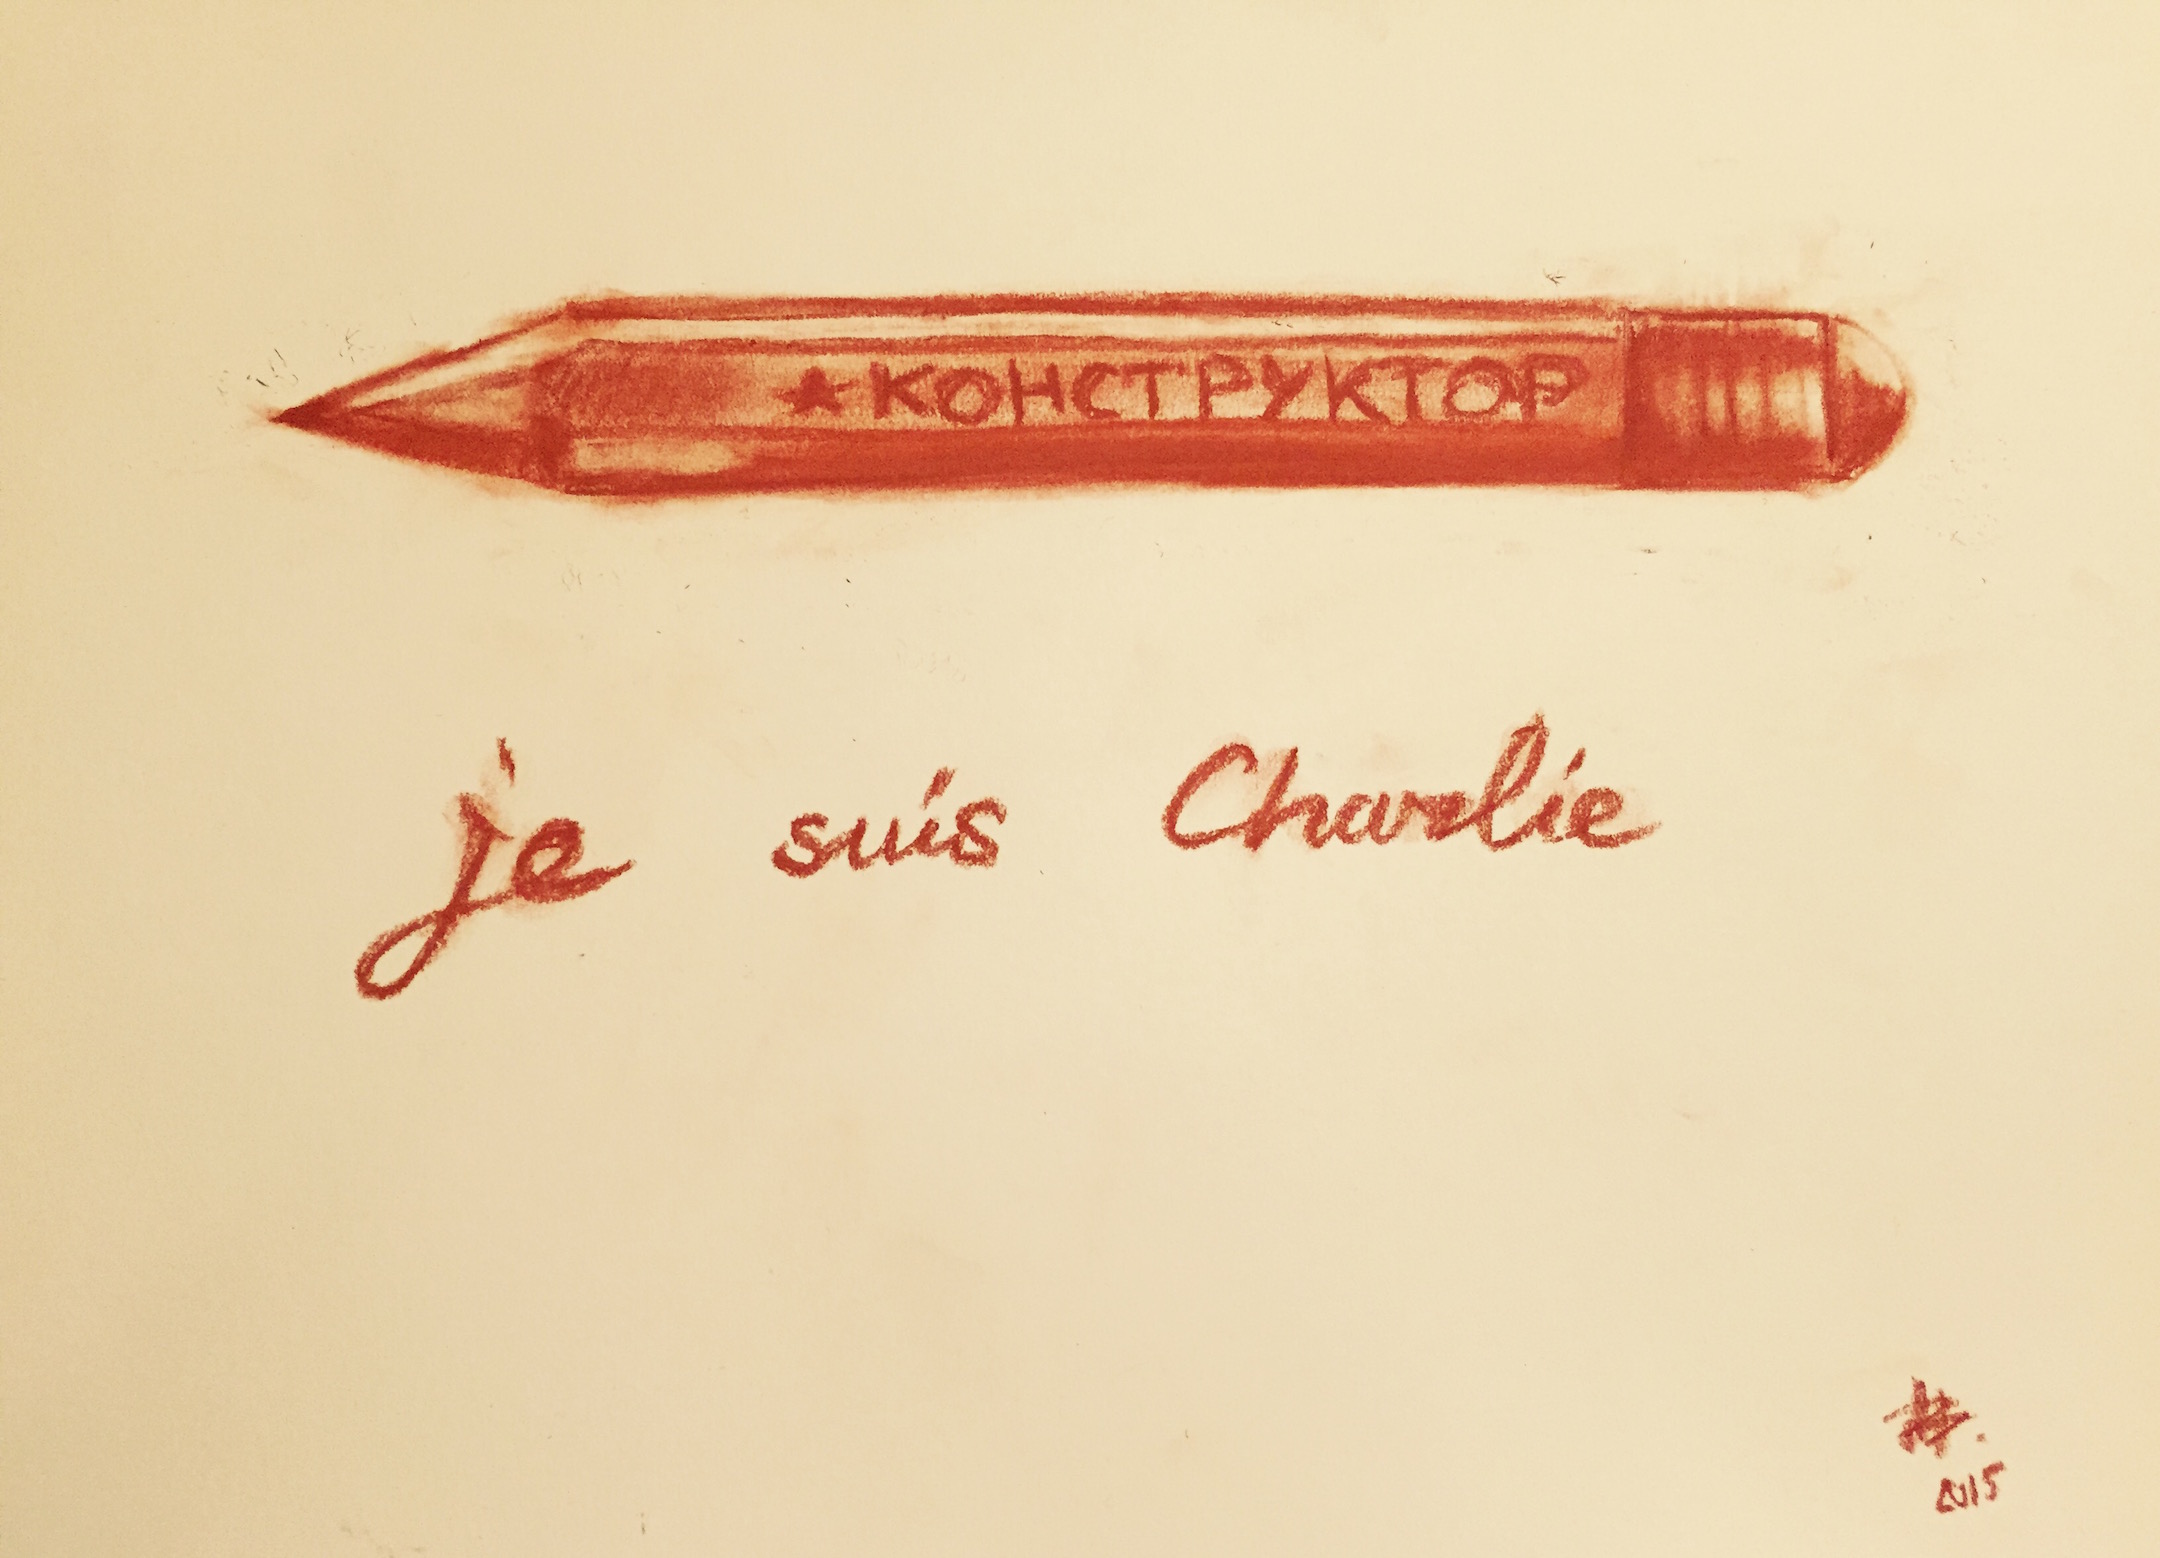 ★КОНСТРУКТОР
je suis Charlie
2015